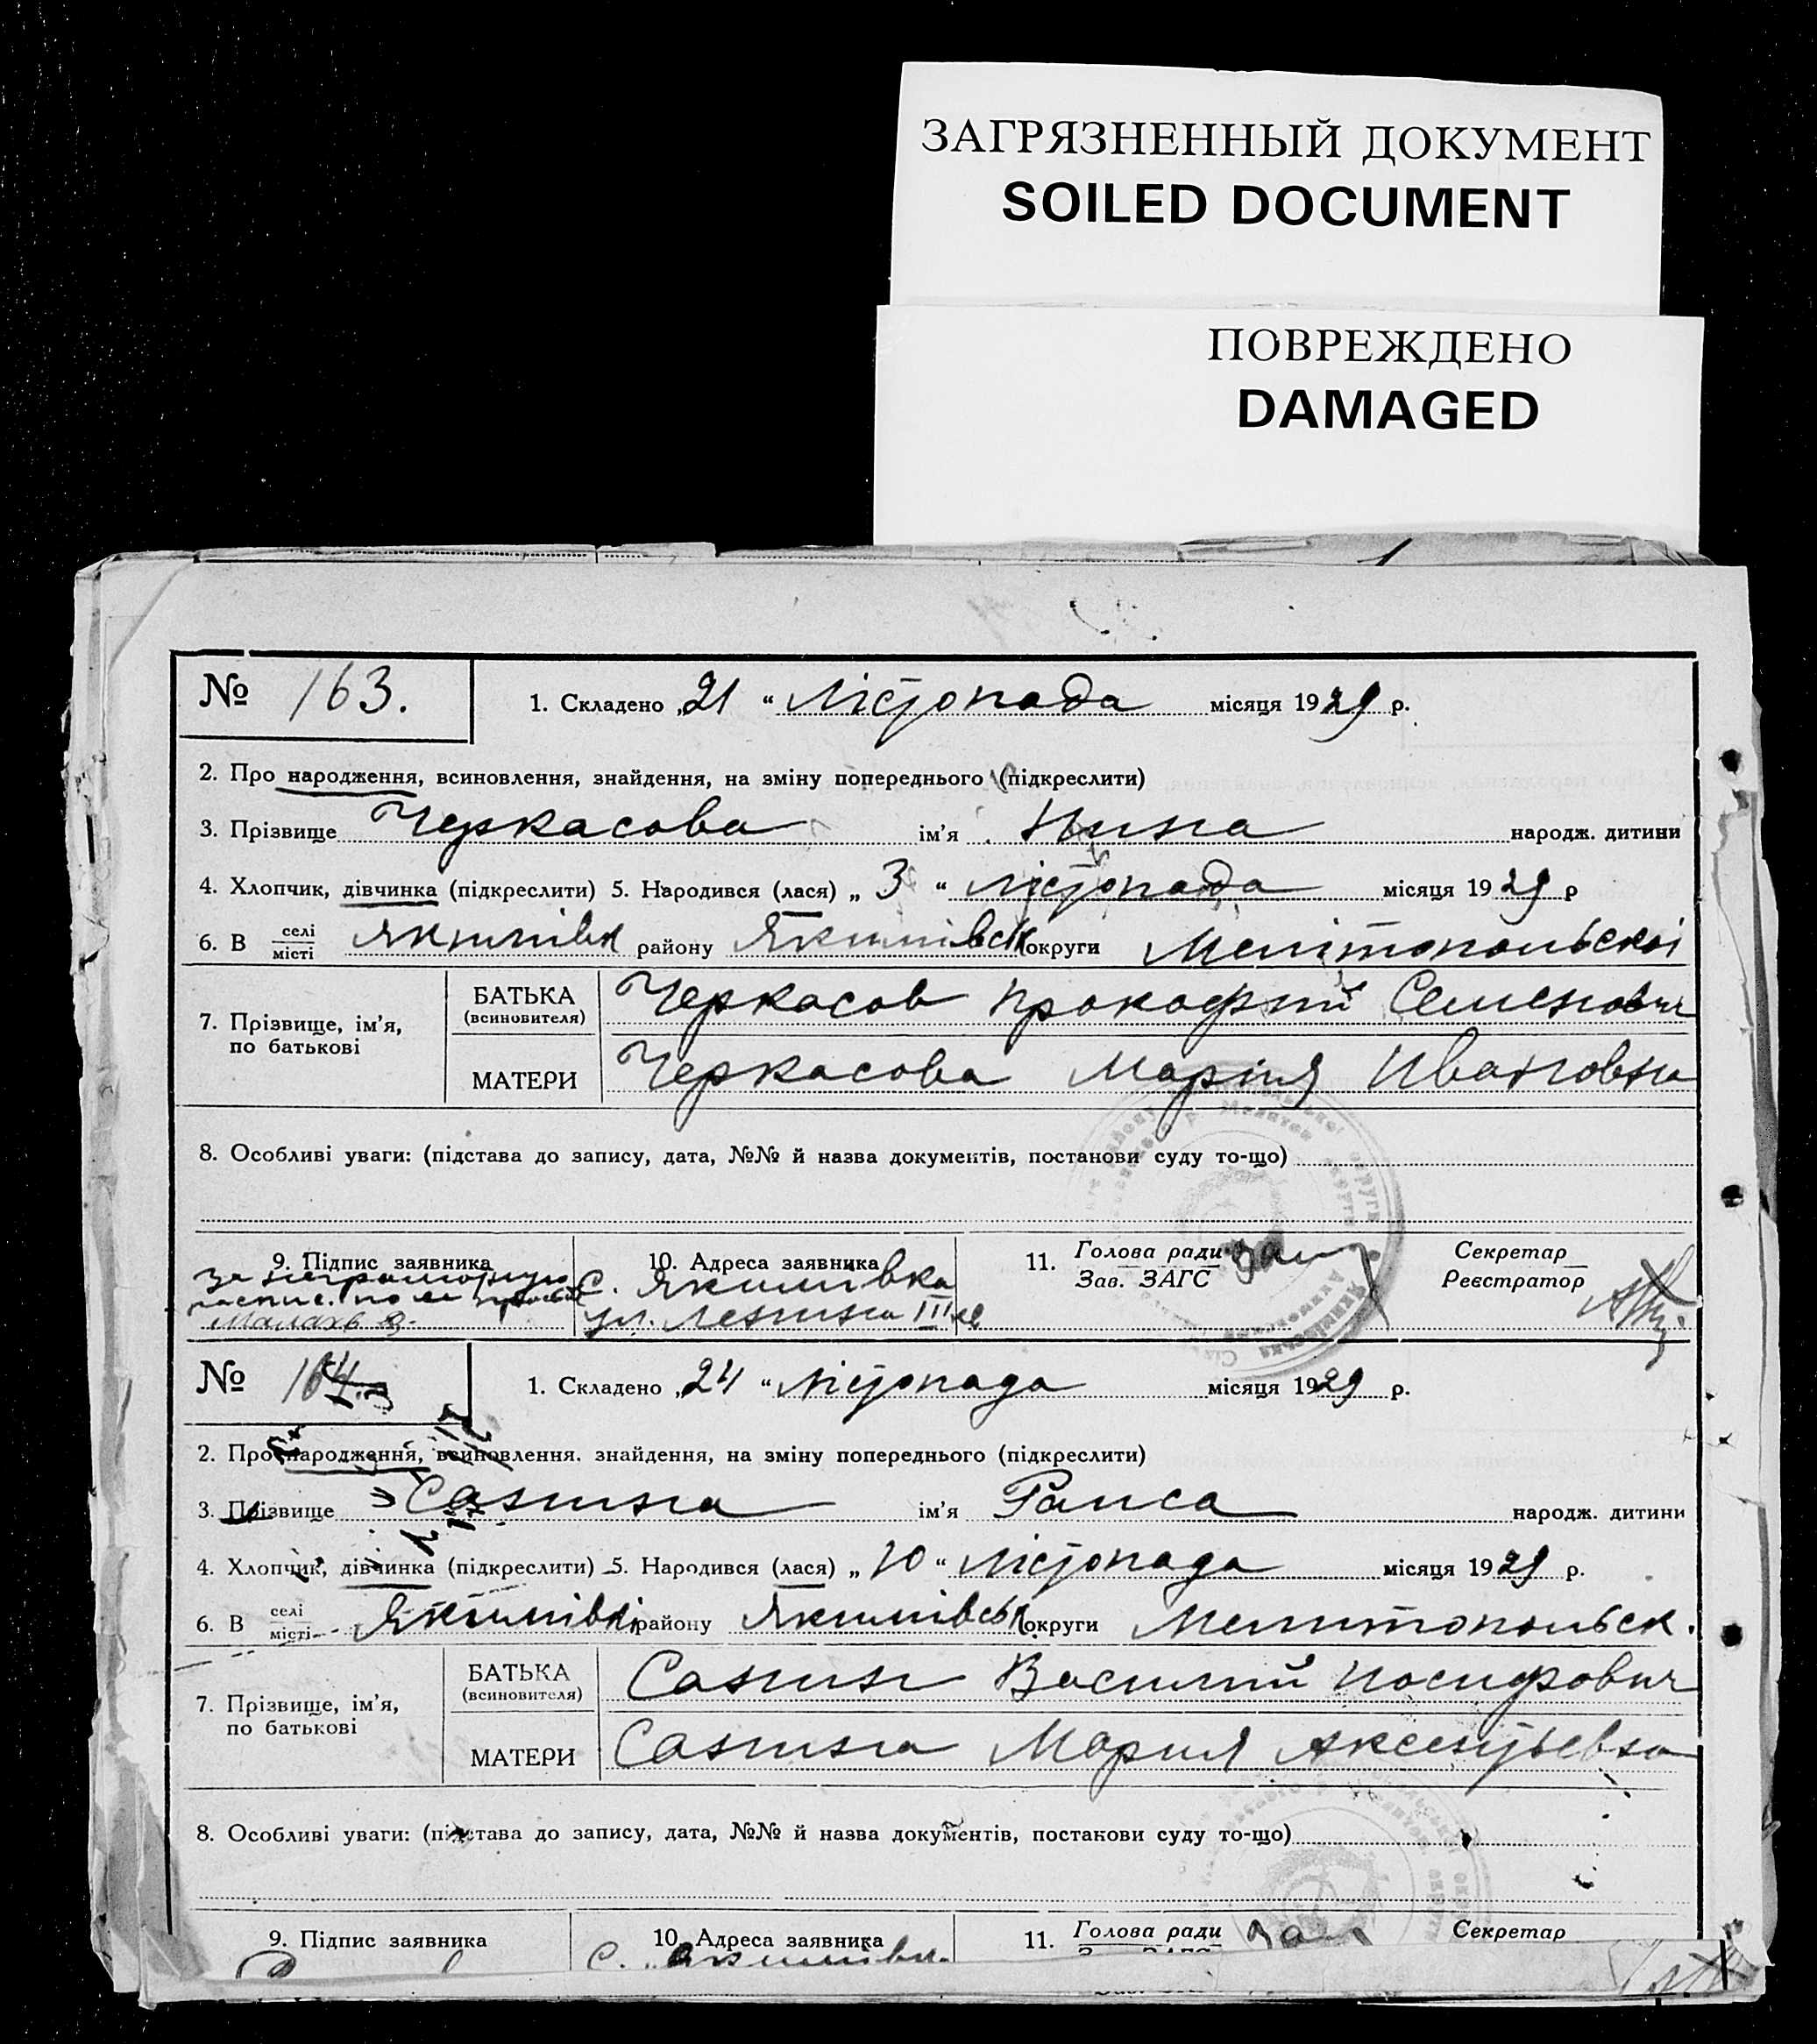 ЗАГРЯЗНЕННЫЙ ДОКУМЕНТ
SOILED DOCUMENT
ПОВРЕЖДЕНО
DAMAGED
№ 163.
1. Складено „21 “ Лістопада місяця 1929 р.
2. Про народження, всиновлення, знайдення, на зміну попереднього (підкреслити)
3. Прізвище Черкасова ім'я Нина народж. дитини
4. Хлопчик, дівчинка (підкреслити) 5. Народився (лася) „ 3 “ Лістопада місяця 1929 р
6. В селі місті Якимівк району Якимівськ округи Мелітопольскоі
7. Прізвище, ім'я, по батькові
БАТЬКА (всиновителя) Черкасов Прокофий Семенович
МАТЕРИ Черкасова Марія Ивановна
8. Особливі уваги: (підстава до запису, дата, №№ й назва документів, постанови суду то-що)
9. Підпис заявника
за неграмотную
10. Адреса заявника
с. Якимівка
ул. Ленина III
11. Голова ради Зав. ЗАГС
Секретар
Реєстратор
№ 164.
1. Складено „24 “ Лістопада місяця 1929 р.
2. Про народження, всиновлення. знайдення, на зміну попереднього (підкреслити)
3. Прізвище Сазина ім'я Раиса народж. дитини
4. Хлопчик, дівчинка (підкреслити) 5. Народився (лася) „ 10 “ Лістопада місяця 1929 р.
6. В селі місті Якимівкі району Якимівськ округи Мелитопольск.
7. Прізвище, ім'я, по батькові
БАТЬКА (всиновителя) Сазин Василий Иосифович
МАТЕРИ Сазина Мария Аксентьевна
8. Особливі уваги: (підстава до запису, дата, №№ й назва документів, постанови суду то-що)
9. Підпис заявника
10. Адреса заявника
с. Якимівка
11. Голова ради
Секретар